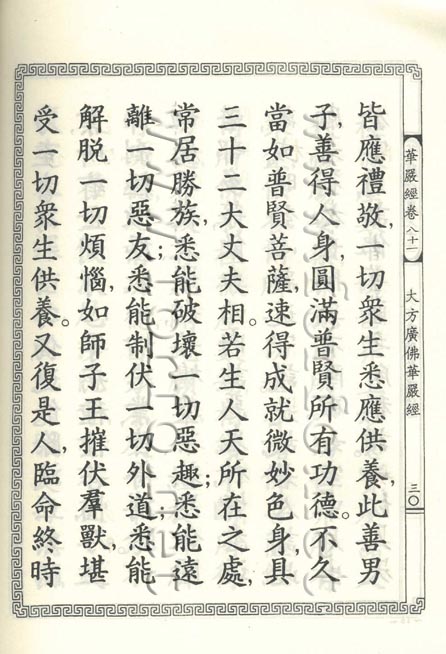 華嚴經卷八十一 大方廣佛華嚴經 三〇
皆應禮敬，一切衆生悉應供養，此善男
子，善得人身，圓滿普賢所有功德。不久
當如普賢菩薩，速得成就微妙色身，具
三十二大丈夫相。若生人天所在之處，
常居勝族，悉能破壞一切惡趣；悉能遠
離一切惡友；悉能制伏一切外道；悉能
解脱一切煩惱，如師子王摧伏羣獸，堪
受一切衆生供養。又復是人，臨命終時